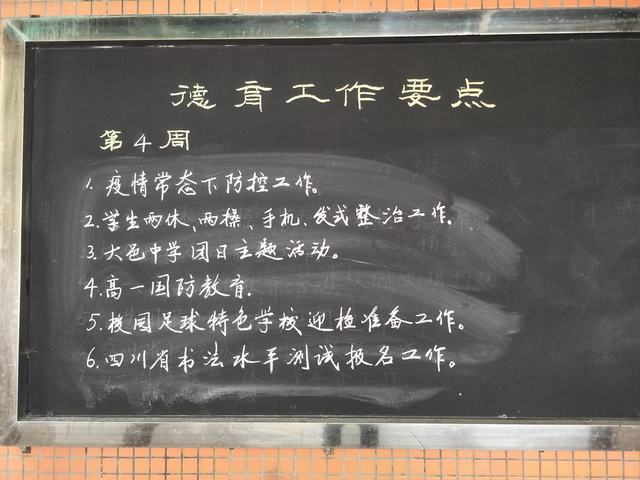 德育工作要点
第4周
1. 疫情常态下防控工作。
2. 学生两休、两操、手机、发式整治工作。
3. 大邑中学团日主题活动。
4. 高一国防教育.
5. 校园足球特色学校迎检准备工作。
6. 四川省书法水平测试报名工作。